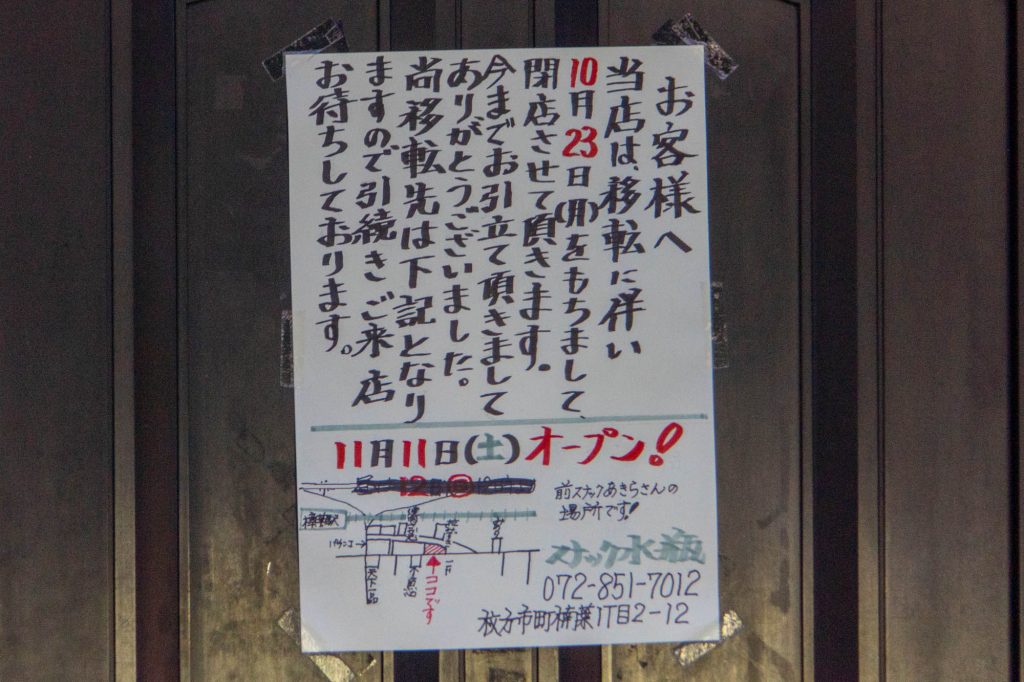 お客様へ
当店は、移転に伴い
10月23日(月)をもちまして、
閉店させて頂きます。
今までお引立て頂きまして
ありがとうございました。
尚移転先は下記となり
ますので引続きご来店
お待ちしております。
11月11日(土)オープン!
前スナックあきらさんの
場所です!
樟葉駅
パチンコ
天下一品
ココです
スナック水瓶
072-851-7012
枚方市町楠葉1丁目2-12